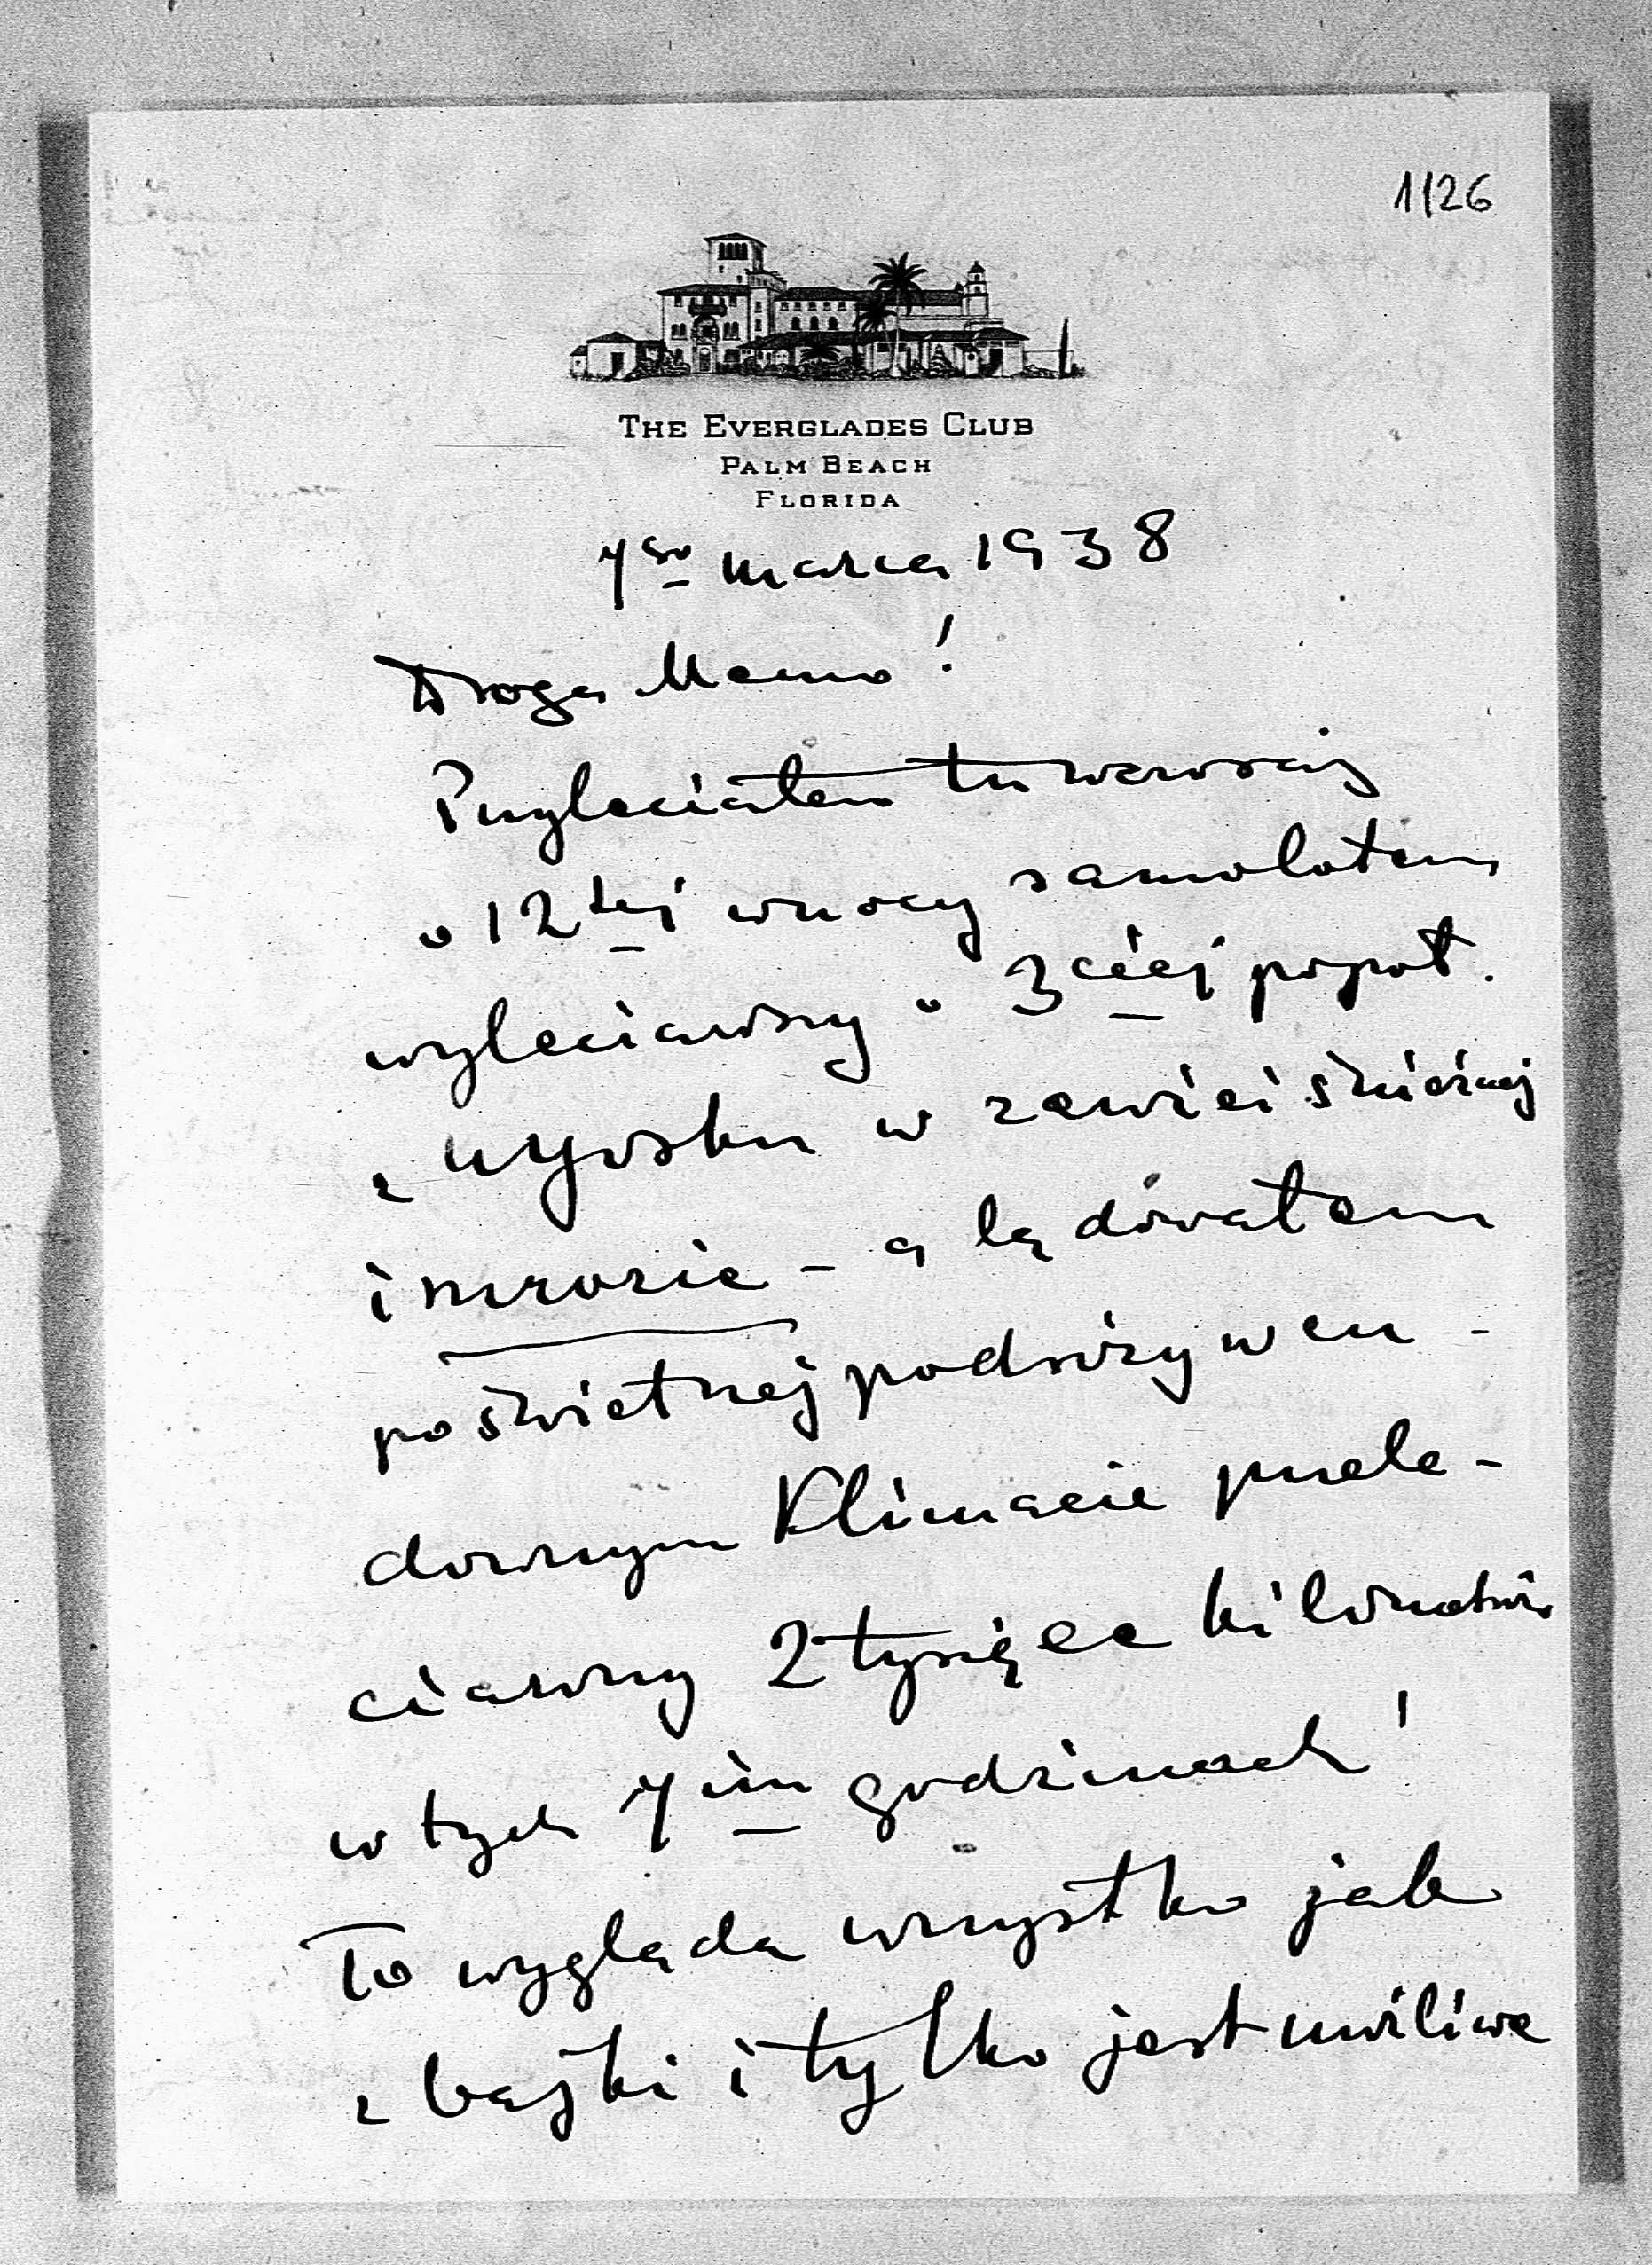 1/26
THE EVERGLADES CLUB
PALM BEACH
FLORIDA
7go marca 1938
Droga Mamo!
Przyleciałem tu wczoraj
o 12tej w nocy samolotem
wyleciawszy o 3ciej popoł.
z NYorku w zawiei śnieżnej
i mrozie – a lądowałem
po świetnej podróży w cu-
downym klimacie przele-
ciawszy 2 tysiące kilometrów
w tych 7iu godzinach!
To wygląda wszystko jak
z bajki i tylko jest możliwe